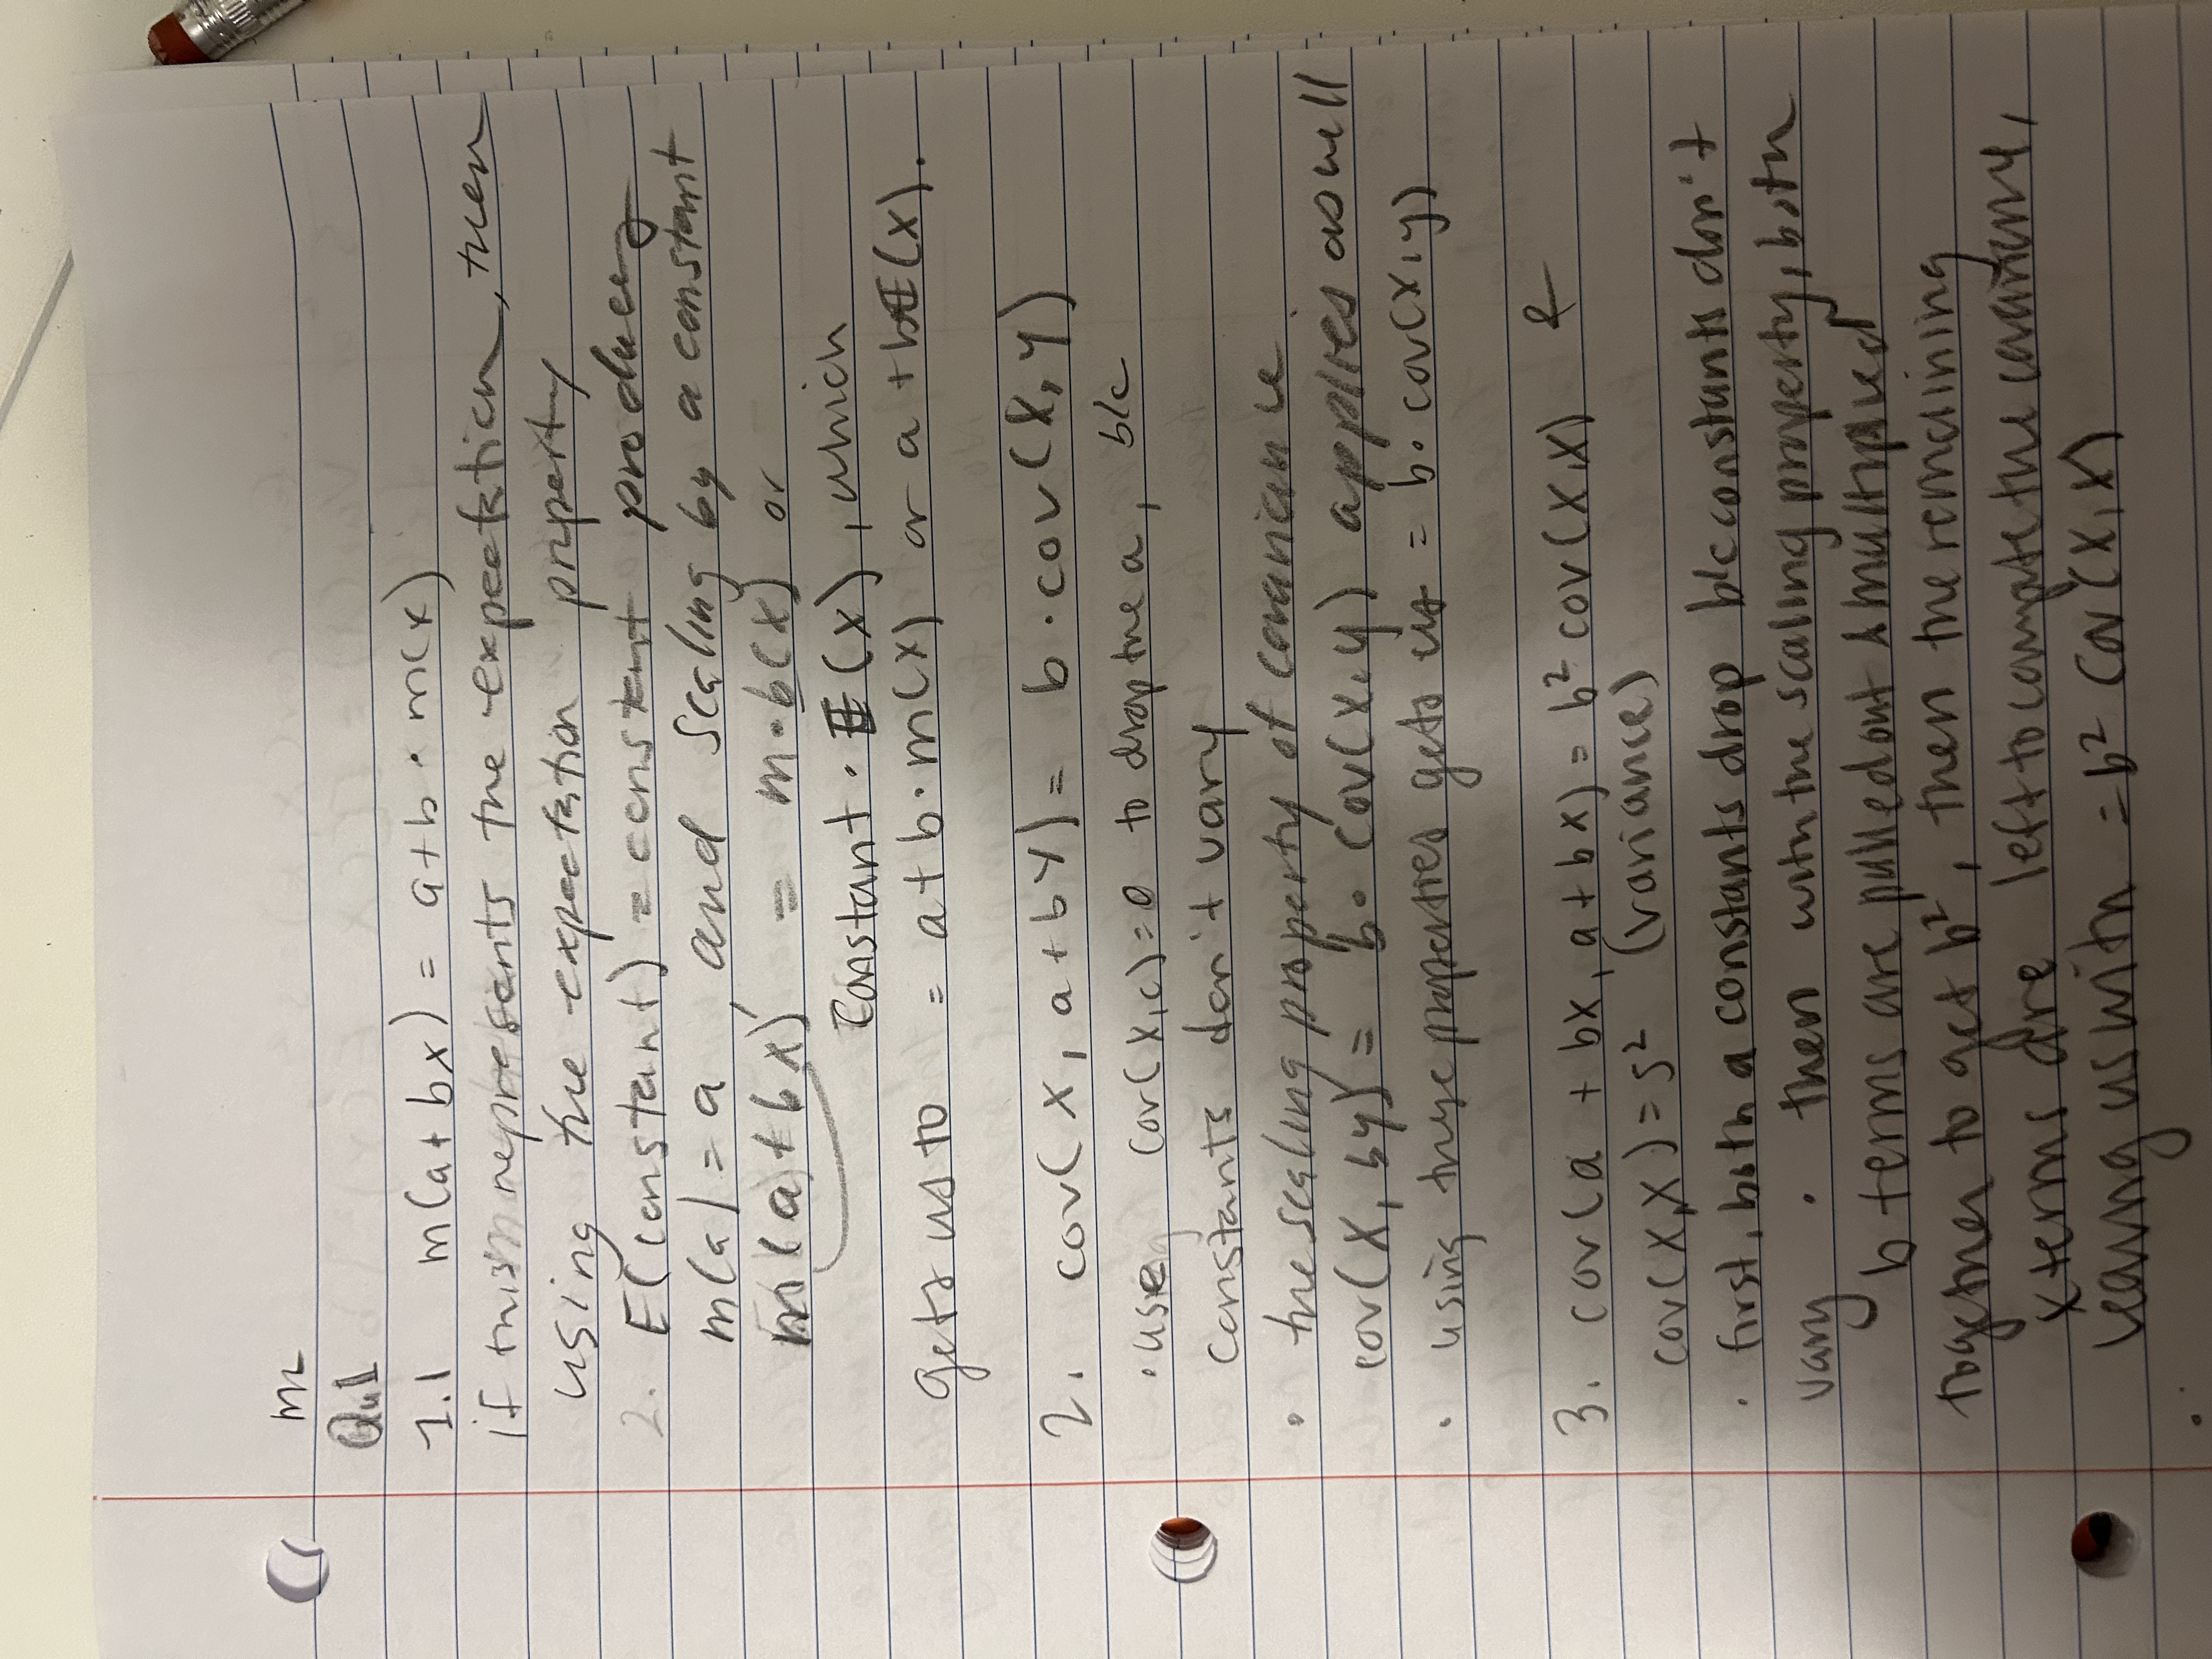 m
Qu1
1.1 m(a+bx) = a+b·m(x)
if this represents the expectation, then
using the expectation property
2. E(constant) = constant produces
m(a) = a, and scaling by a constant
m(a+bx) = m·b(x) or
constant·E(x), which
gets us to = a+b·m(x) or a+bE(x).
2. cov(X, a+bY) = b·cov(X,Y)
· use cov(X,c)=0 to drop the a, b/c
constants don't vary
· the scaling property of covariance
cov(X, by) = b·cov(X,y) applies as well
· using these properties gets us = b·cov(X,y)
3. cov(a + bx, a+bx) = b² cov(X,X) &
cov(X,X) = s² (variance)
· first, both a constants drop b/c constants don't
vary · then with the scaling property, both
b terms are pulled out & multiplied
together to get b², then the remaining
x terms are left to compute the covariance,
leaving us with = b² cov(X,X)